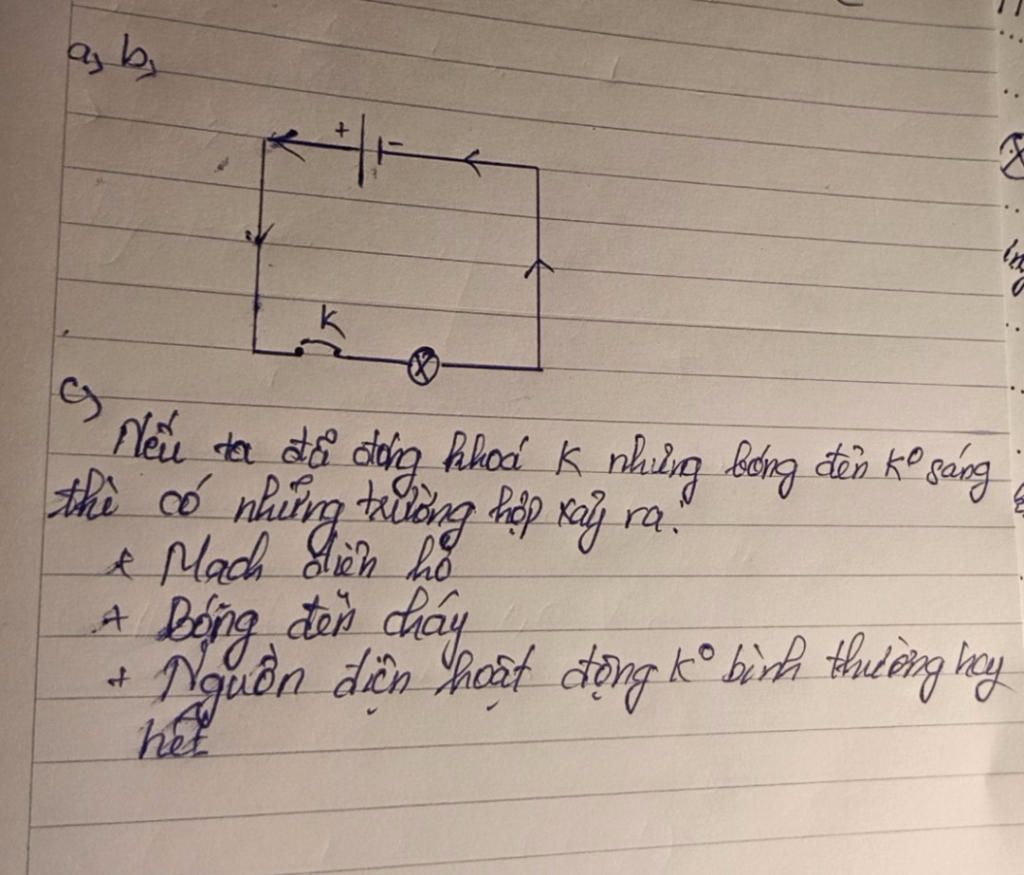 a, b,
+ -
K
c,
Nếu ta đã đóng khoá K nhưng bóng đèn K° sáng
thì có những trường hợp xảy ra:
+ Mạch điện hở
+ Bóng đèn cháy
+ Nguồn điện hoạt động K° bình thường hay
hết